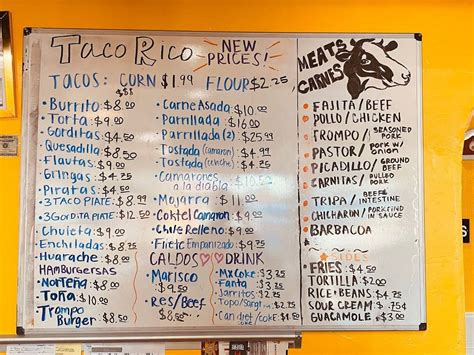 Taco Rico
NEW PRICES!
TACOS: CORN $1.99 FLOUR $2.25
• Burrito $8.00
• Torta $9.00
• Gorditas $4.50
• Quesadilla $8.50
• Flautas $9.00
• Gringas $4.75
• Piratas $4.50
• 3 TACO PLATE $8.99
• 3 Gordita PLATE $12.50
• Chuleta $9.00
• Enchiladas $8.75
• Huarache $8.00
HAMBURGERSAS
• Norteña $8.00
• Toña $10.00
• Trompo Burger $8.50
• Carne Asada $10.00
• Parrillada $16.00
• Parrillada (2) $25.99
• Tostada (camaron) $4.99
• Tostada (ceviche) $4.75
• Camarones a la diabla $10.00
• Mojarra $11.00
• Coktel Camaron $9.00
• Chile Relleno $9.00
• Filete Empanizado $9.75
CALDOS
• Marisco $9.50
• Res/Beef $8.50
DRINK
• Mx Coke $3.75
• Fanta $3.25
• Jarritos $2.75
• Topo/Sangri
• Can diet/coke $1.50
MEATS
CARNES
• FAJITA/BEEF
• POLLO/CHICKEN
• TROMPO/SEASONED PORK
• PASTOR/PORK w/ onion
• PICADILLO/GROUND BEEF
• CARNITAS/PULLED PORK
• TRIPA/BEEF INTESTINE
• CHICHARON/PORK RIND IN SAUCE
• BARBACOA
SIDES
FRIES: $4.50
TORTILLA $2.00
RICE + BEANS $4.75
SOUR CREAM .75¢
GUACAMOLE $3.00